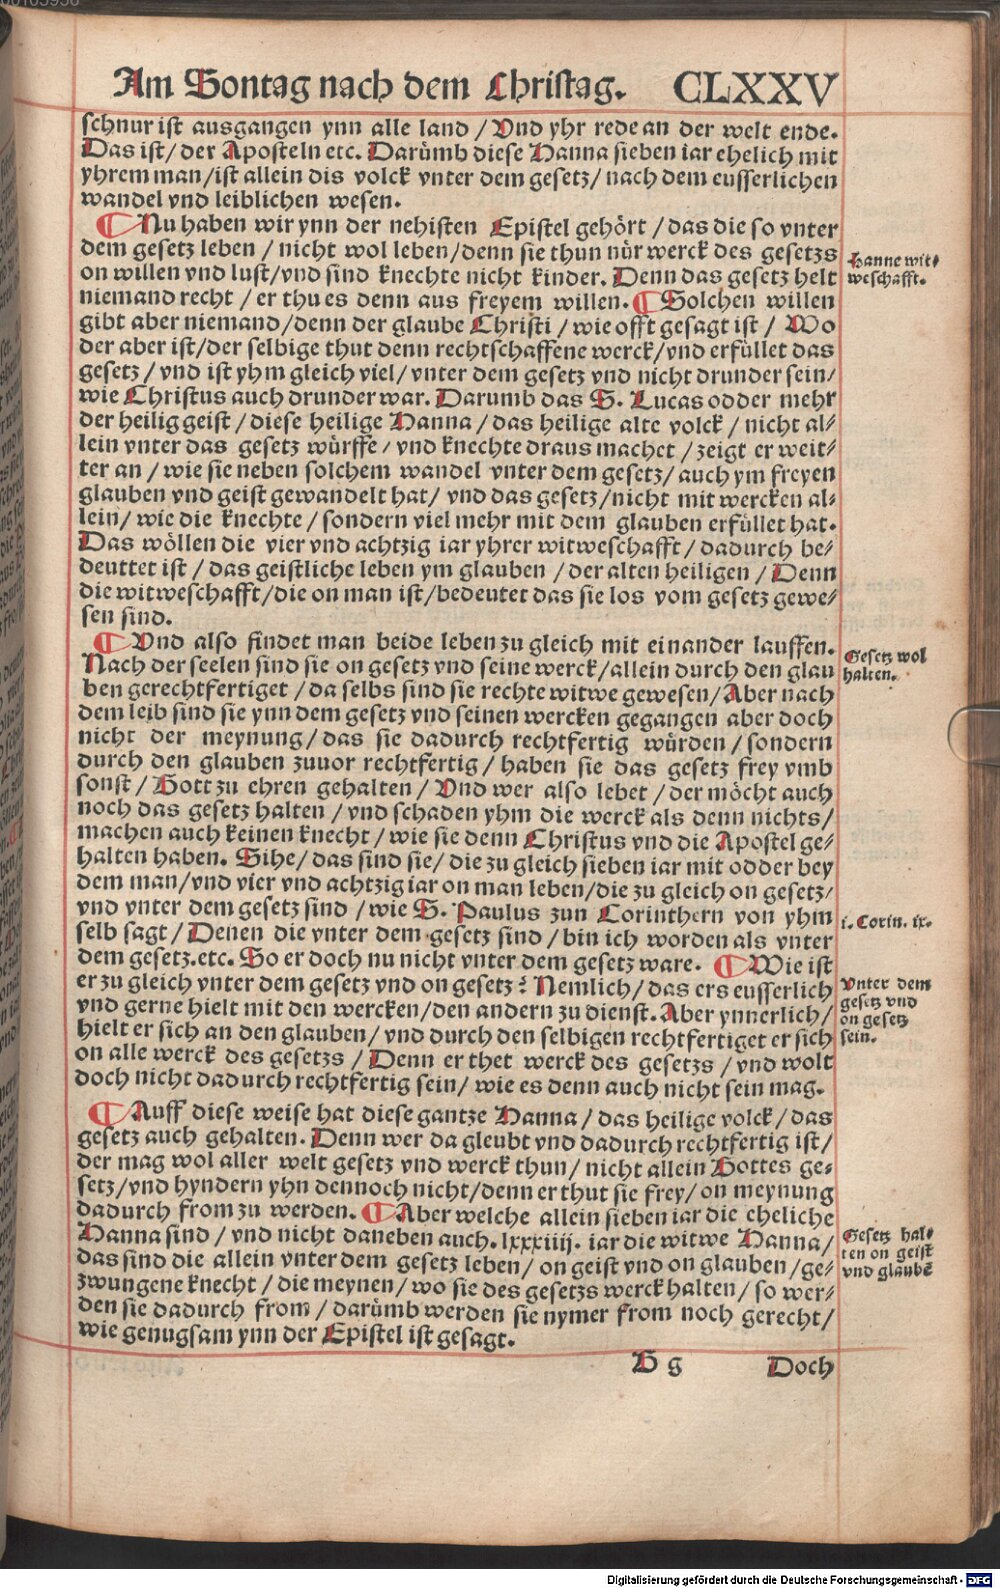 Am Sontag nach dem Christag. CLXXV
schnur ist ausgangen ynn alle land / Vnd yhr rede an der welt ende.
Das ist / der Aposteln etc. Darümb diese Hanna sieben iar ehelich mit
yhrem man / ist allein dis volck vnter dem gesetz / nach dem eusserlichen
wandel vnd leiblichen wesen.
¶ Nu haben wir ynn der nehisten Epistel gehört / das die so vnter
dem gesetz leben / nicht wol leben / denn sie thun nür werck des gesetzs
on willen vnd lust / vnd sind knechte nicht kinder. Denn das gesetz helt
niemand recht / er thu es denn aus freyem willen. ¶ Solchen willen
gibt aber niemand / denn der glaube Christi / wie offt gesagt ist / Wo
der aber ist / der selbige thut denn rechtschaffene werck / vnd erfüllet das
gesetz / vnd ist yhm gleich viel / vnter dem gesetz vnd nicht drunder sein /
wie Christus auch drunder war. Darumb das S. Lucas odder mehr
der heilig geist / diese heilige Hanna / das heilige alte volck / nicht al⸗
lein vnter das gesetz würffe / vnd knechte draus machet / zeigt er weit⸗
ter an / wie sie neben solchem wandel vnter dem gesetz / auch ym freyen
glauben vnd geist gewandelt hat / vnd das gesetz / nicht mit wercken al⸗
lein / wie die knechte / sondern viel mehr mit dem glauben erfüllet hat.
Das wöllen die vier vnd achtzig iar yhrer witweschafft / dadurch be⸗
deuttet ist / das geistliche leben ym glauben / der alten heiligen / Denn
die witweschafft / die on man ist / bedeutet das sie los vom gesetz gewe⸗
sen sind.
¶ Vnd also findet man beide leben zu gleich mit einander lauffen.
Nach der seelen sind sie on gesetz vnd seine werck / allein durch den glau
ben gerechtfertiget / da selbs sind sie rechte witwe gewesen / Aber nach
dem leib sind sie ynn dem gesetz vnd seinen wercken gegangen aber doch
nicht der meynung / das sie dadurch rechtfertig würden / sondern
durch den glauben zuuor rechtfertig / haben sie das gesetz frey vmb
sonst / Gott zu ehren gehalten / Vnd wer also lebet / der möcht auch
noch das gesetz halten / vnd schaden yhm die werck als denn nichts /
machen auch keinen knecht / wie sie denn Christus vnd die Apostel ge⸗
halten haben. Sihe / das sind sie / die zu gleich sieben iar mit odder bey
dem man / vnd vier vnd achtzig iar on man leben / die zu gleich on gesetz /
vnd vnter dem gesetz sind / wie S. Paulus zun Corinthern von yhm
selb sagt / Denen die vnter dem gesetz sind / bin ich worden als vnter
dem gesetz. etc. So er doch nu nicht vnter dem gesetz ware. ¶ Wie ist
er zu gleich vnter dem gesetz vnd on gesetz? Nemlich / das ers eusserlich
vnd gerne hielt mit den wercken / den andern zu dienst. Aber ynnerlich /
hielt er sich an den glauben / vnd durch den selbigen rechtfertiget er sich
on alle werck des gesetzs / Denn er thet werck des gesetzs / vnd wolt
doch nicht dadurch rechtfertig sein / wie es denn auch nicht sein mag.
¶ Auff diese weise hat diese gantze Hanna / das heilige volck / das
gesetz auch gehalten. Denn wer da gleubt vnd dadurch rechtfertig ist /
der mag wol aller welt gesetz vnd werck thun / nicht allein Gottes ge⸗
setz / vnd hyndern yhn dennoch nicht / denn er thut sie frey / on meynung
dadurch from zu werden. ¶ Aber welche allein sieben iar die eheliche
Hanna sind / vnd nicht daneben auch. lxxxiiij. iar die witwe Hanna /
das sind die allein vnter dem gesetz leben / on geist vnd on glauben / ge⸗
zwungene knecht / die meynen / wo sie des gesetzs werck halten / so wer⸗
den sie dadurch from / darümb werden sie nymer from noch gerecht /
wie genugsam ynn der Epistel ist gesagt.
Hanne wit⸗
weschafft.
Gesetz wol
halten.
i. Corin. ix.
Vnter dem
gesetz vnd
on gesetz
sein.
Gesetz hal⸗
ten on geist
vnd glaubē
G g Doch
Digitalisierung gefördert durch die Deutsche Forschungsgemeinschaft - DFG